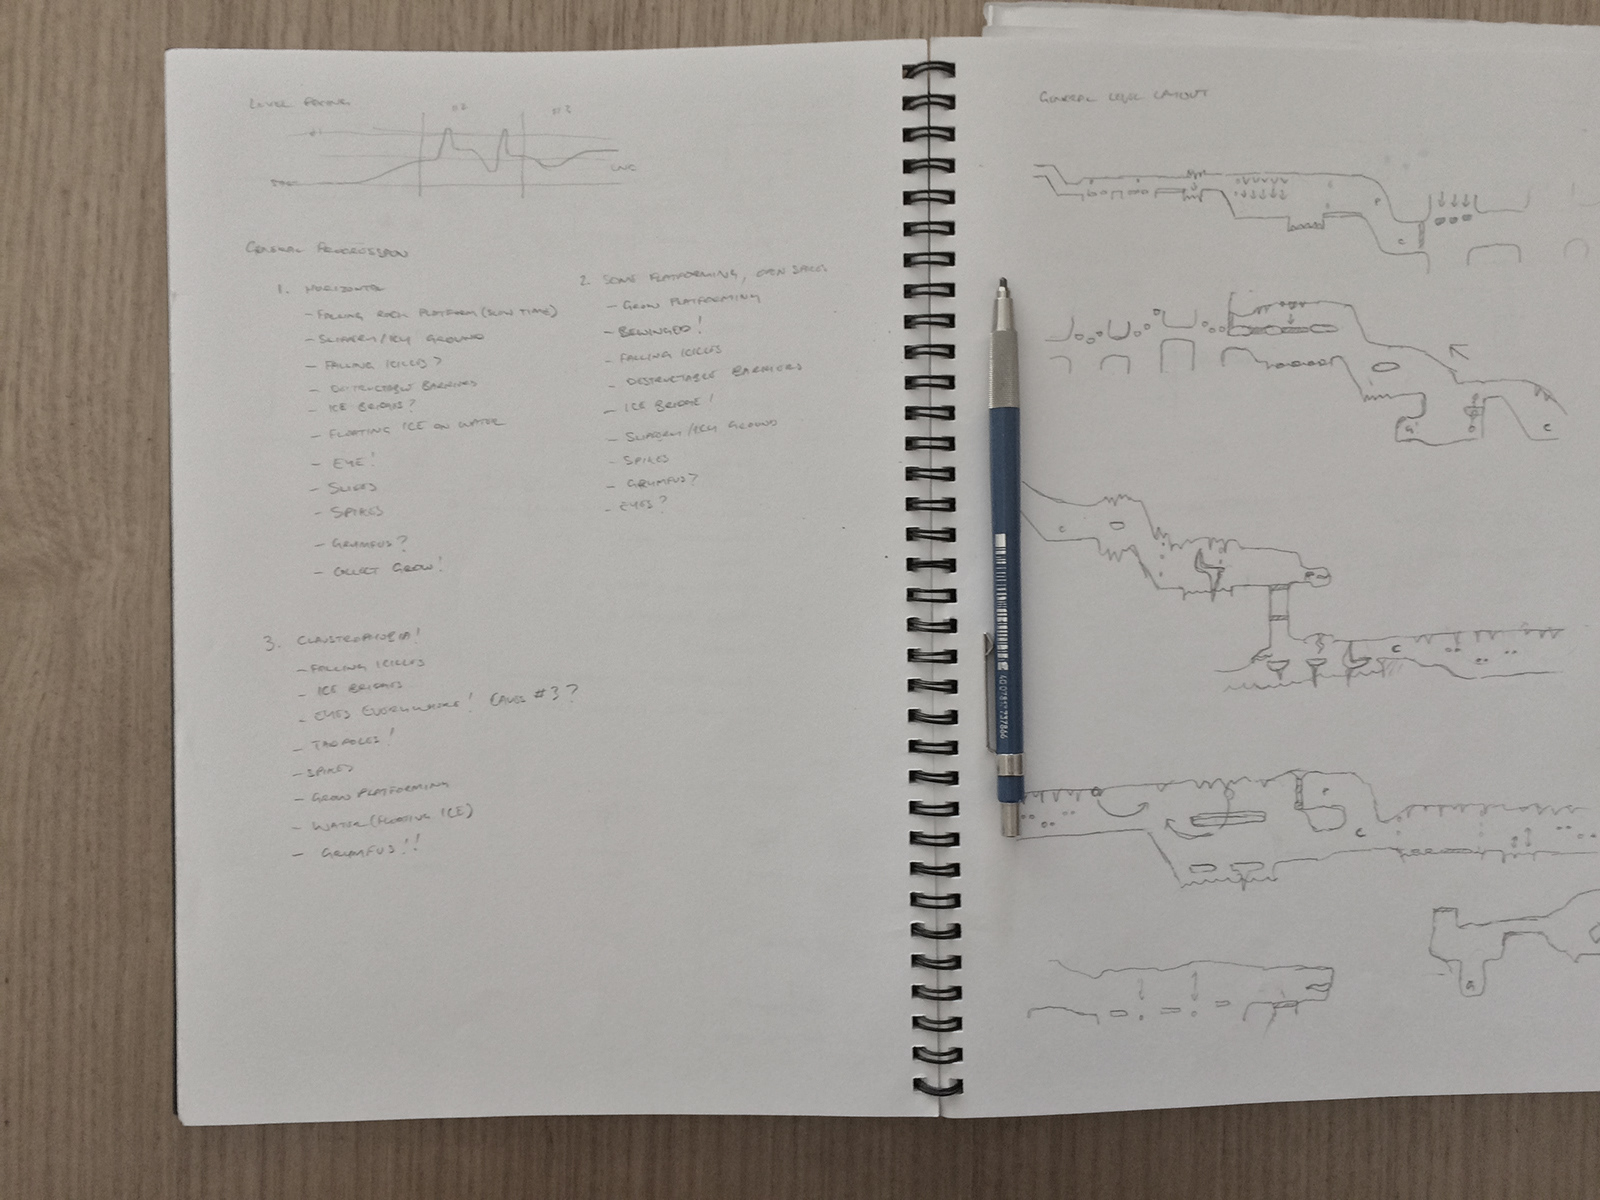 LEVEL PACING
#1
#2
#3
START
END
GENERAL PROGRESSION
1. HORIZONTAL
- FALLING ROCK PLATFORM (SLOW TIME)
- SLIPPERY/ICY GROUND
- FALLING ICICLES?
- DESTRUCTABLE BARRIERS
- ICE BRIDGES?
- FLOATING ICE ON WATER
- EYE!
- SLIDES
- SPIKES
- GRUMFUS?
- COLLECT GROW!
2. SOME PLATFORMING, OPEN SPACES
- GROW PLATFORMING
- BEWINGED!
- FALLING ICICLES
- DESTRUCTABLE BARRIERS
- ICE BRIDGE!
- SLIPPERY/ICY GROUND
- SPIKES
- GRUMFUS?
- EYES?
3. CLAUSTROPHOBIA!
- FALLING ICICLES
- ICE BRIDGES
- EYES EVERYWHERE! CAVES #3?
- TADPOLES!
- SPIKES
- GROW PLATFORMING
- WATER (FLOATING ICE)
- GRUMFUS!!
GENERAL LEVEL LAYOUT
P
C
G
C
C
C
P
C
G
4007817737866